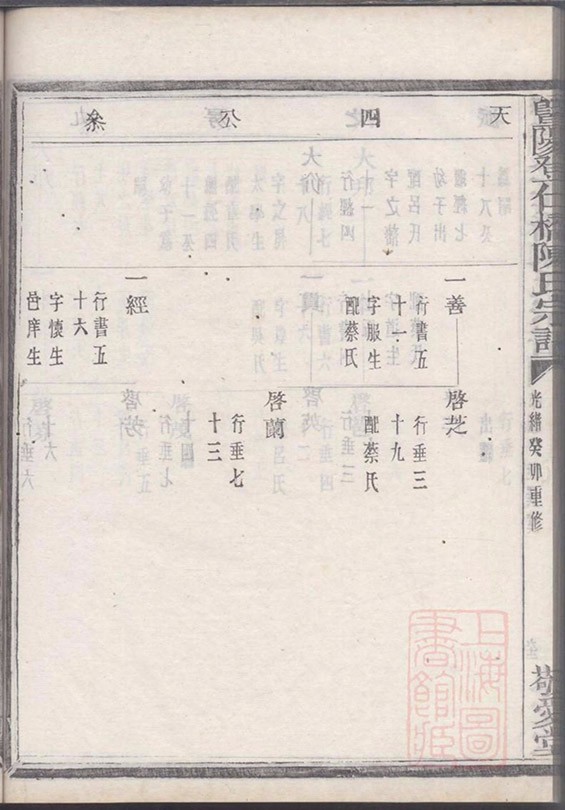 暨陽登仕橋陳氏宗譜
光緒癸卯重修
敬愛堂
天四公叅
一善
行書五
十一
字服生
配蔡氏
啓芝
行垂三
十九
配蔡氏
啓蘭
行垂七
十三
一經
行書五
十六
字懷生
邑庠生
上海圖
書館藏